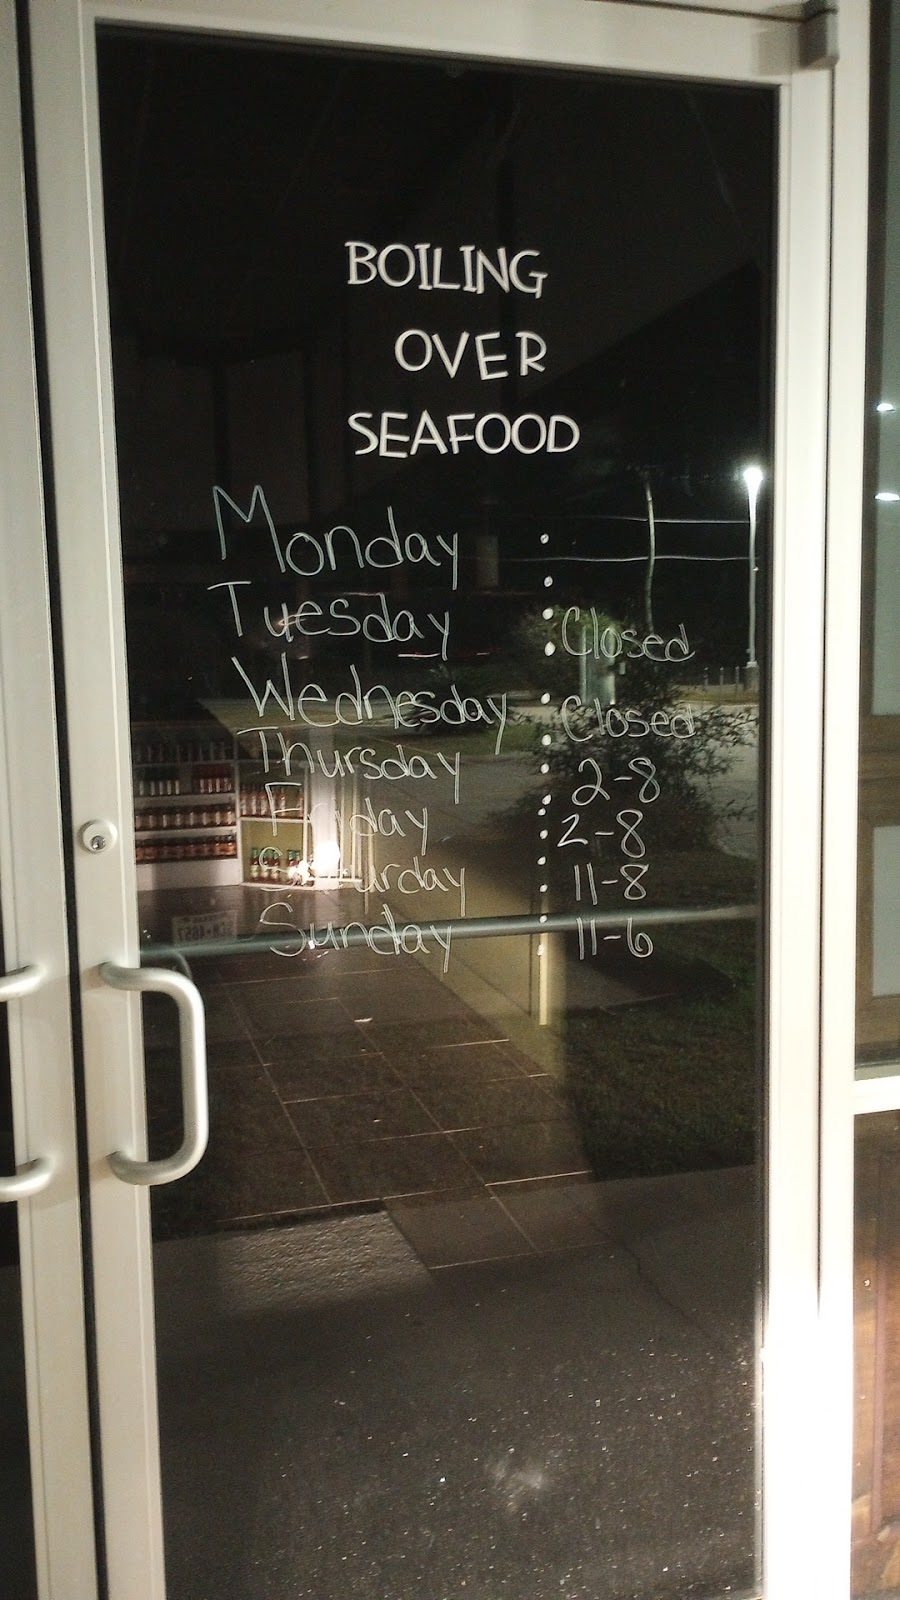 BOILING
OVER
SEAFOOD
Monday :
Tuesday : Closed
Wednesday : Closed
Thursday : 2-8
Friday : 2-8
Saturday : 11-8
Sunday : 11-6